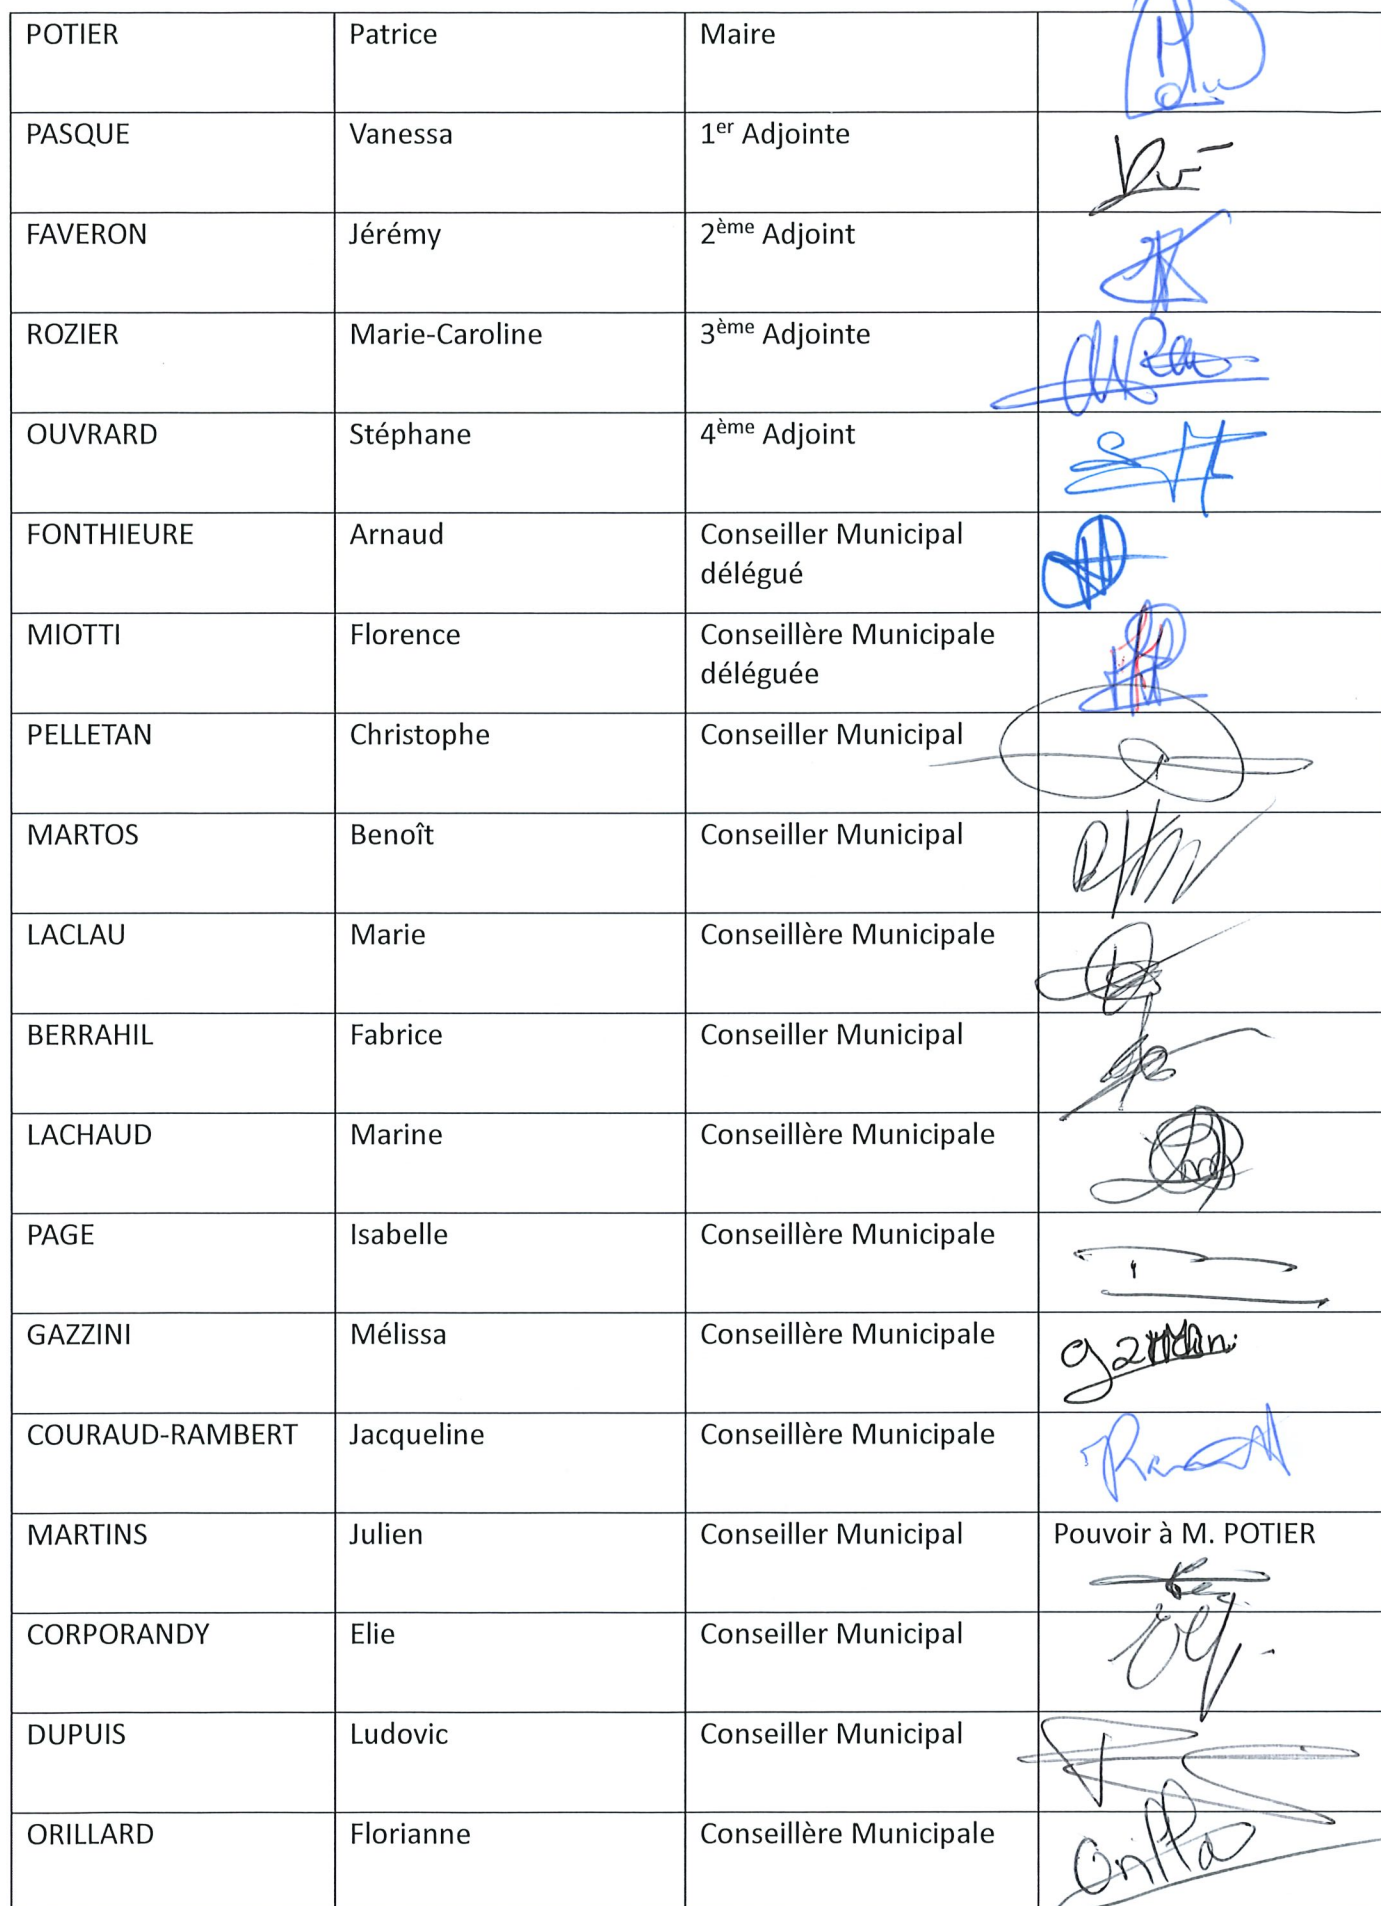 POTIER Patrice Maire
PASQUE Vanessa 1er Adjointe
FAVERON Jérémy 2ème Adjoint
ROZIER Marie-Caroline 3ème Adjointe
OUVRARD Stéphane 4ème Adjoint
FONTHIEURE Arnaud Conseiller Municipal
délégué
MIOTTI Florence Conseillère Municipale
déléguée
PELLETAN Christophe Conseiller Municipal
MARTOS Benoît Conseiller Municipal
LACLAU Marie Conseillère Municipale
BERRAHIL Fabrice Conseiller Municipal
LACHAUD Marine Conseillère Municipale
PAGE Isabelle Conseillère Municipale
GAZZINI Mélissa Conseillère Municipale
COURAUD-RAMBERT Jacqueline Conseillère Municipale
MARTINS Julien Conseiller Municipal Pouvoir à M. POTIER
CORPORANDY Elie Conseiller Municipal
DUPUIS Ludovic Conseiller Municipal
ORILLARD Florianne Conseillère Municipale